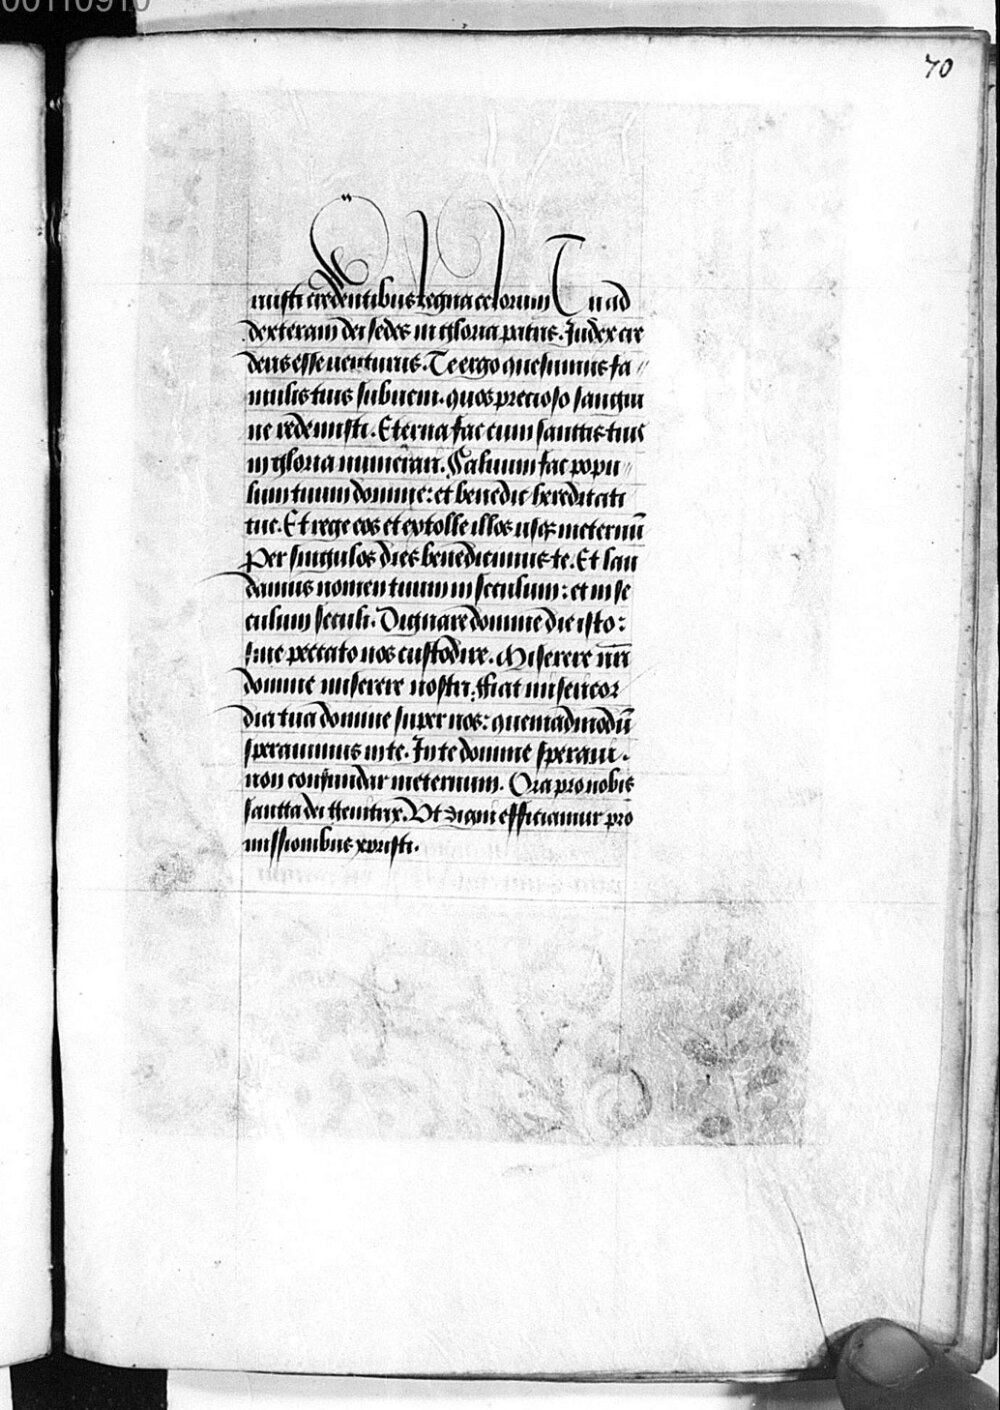 00110910
70
ruisti credentibus regna celorum Tu ad
dexteram dei sedes in gloria patris. Judex cre
deris esse venturus. Te ergo quesumus fa
mulis tuis subueni. quos precioso sangui
ne redemisti. Eterna fac cum sanctis tuis
in gloria numerari. Saluum fac popu
lum tuum domine: et benedic hereditati
tue. Et rege eos et extolle illos usqz ineternū
Per singulos dies benedicimus te. Et lau
damus nomen tuum in seculum: et in se
culum seculi. Dignare domine die isto:
sine peccato nos custodire. Miserere nr̄i
domine miserere nostri. ffiat misericor
dia tua domine super nos: quemadmodū
sperauimus in te. In te domine speraui.
non confundar ineternum. Ora pro nobis
sancta dei genitrix. Vt digni efficiamur pro
missionibus xpristi.